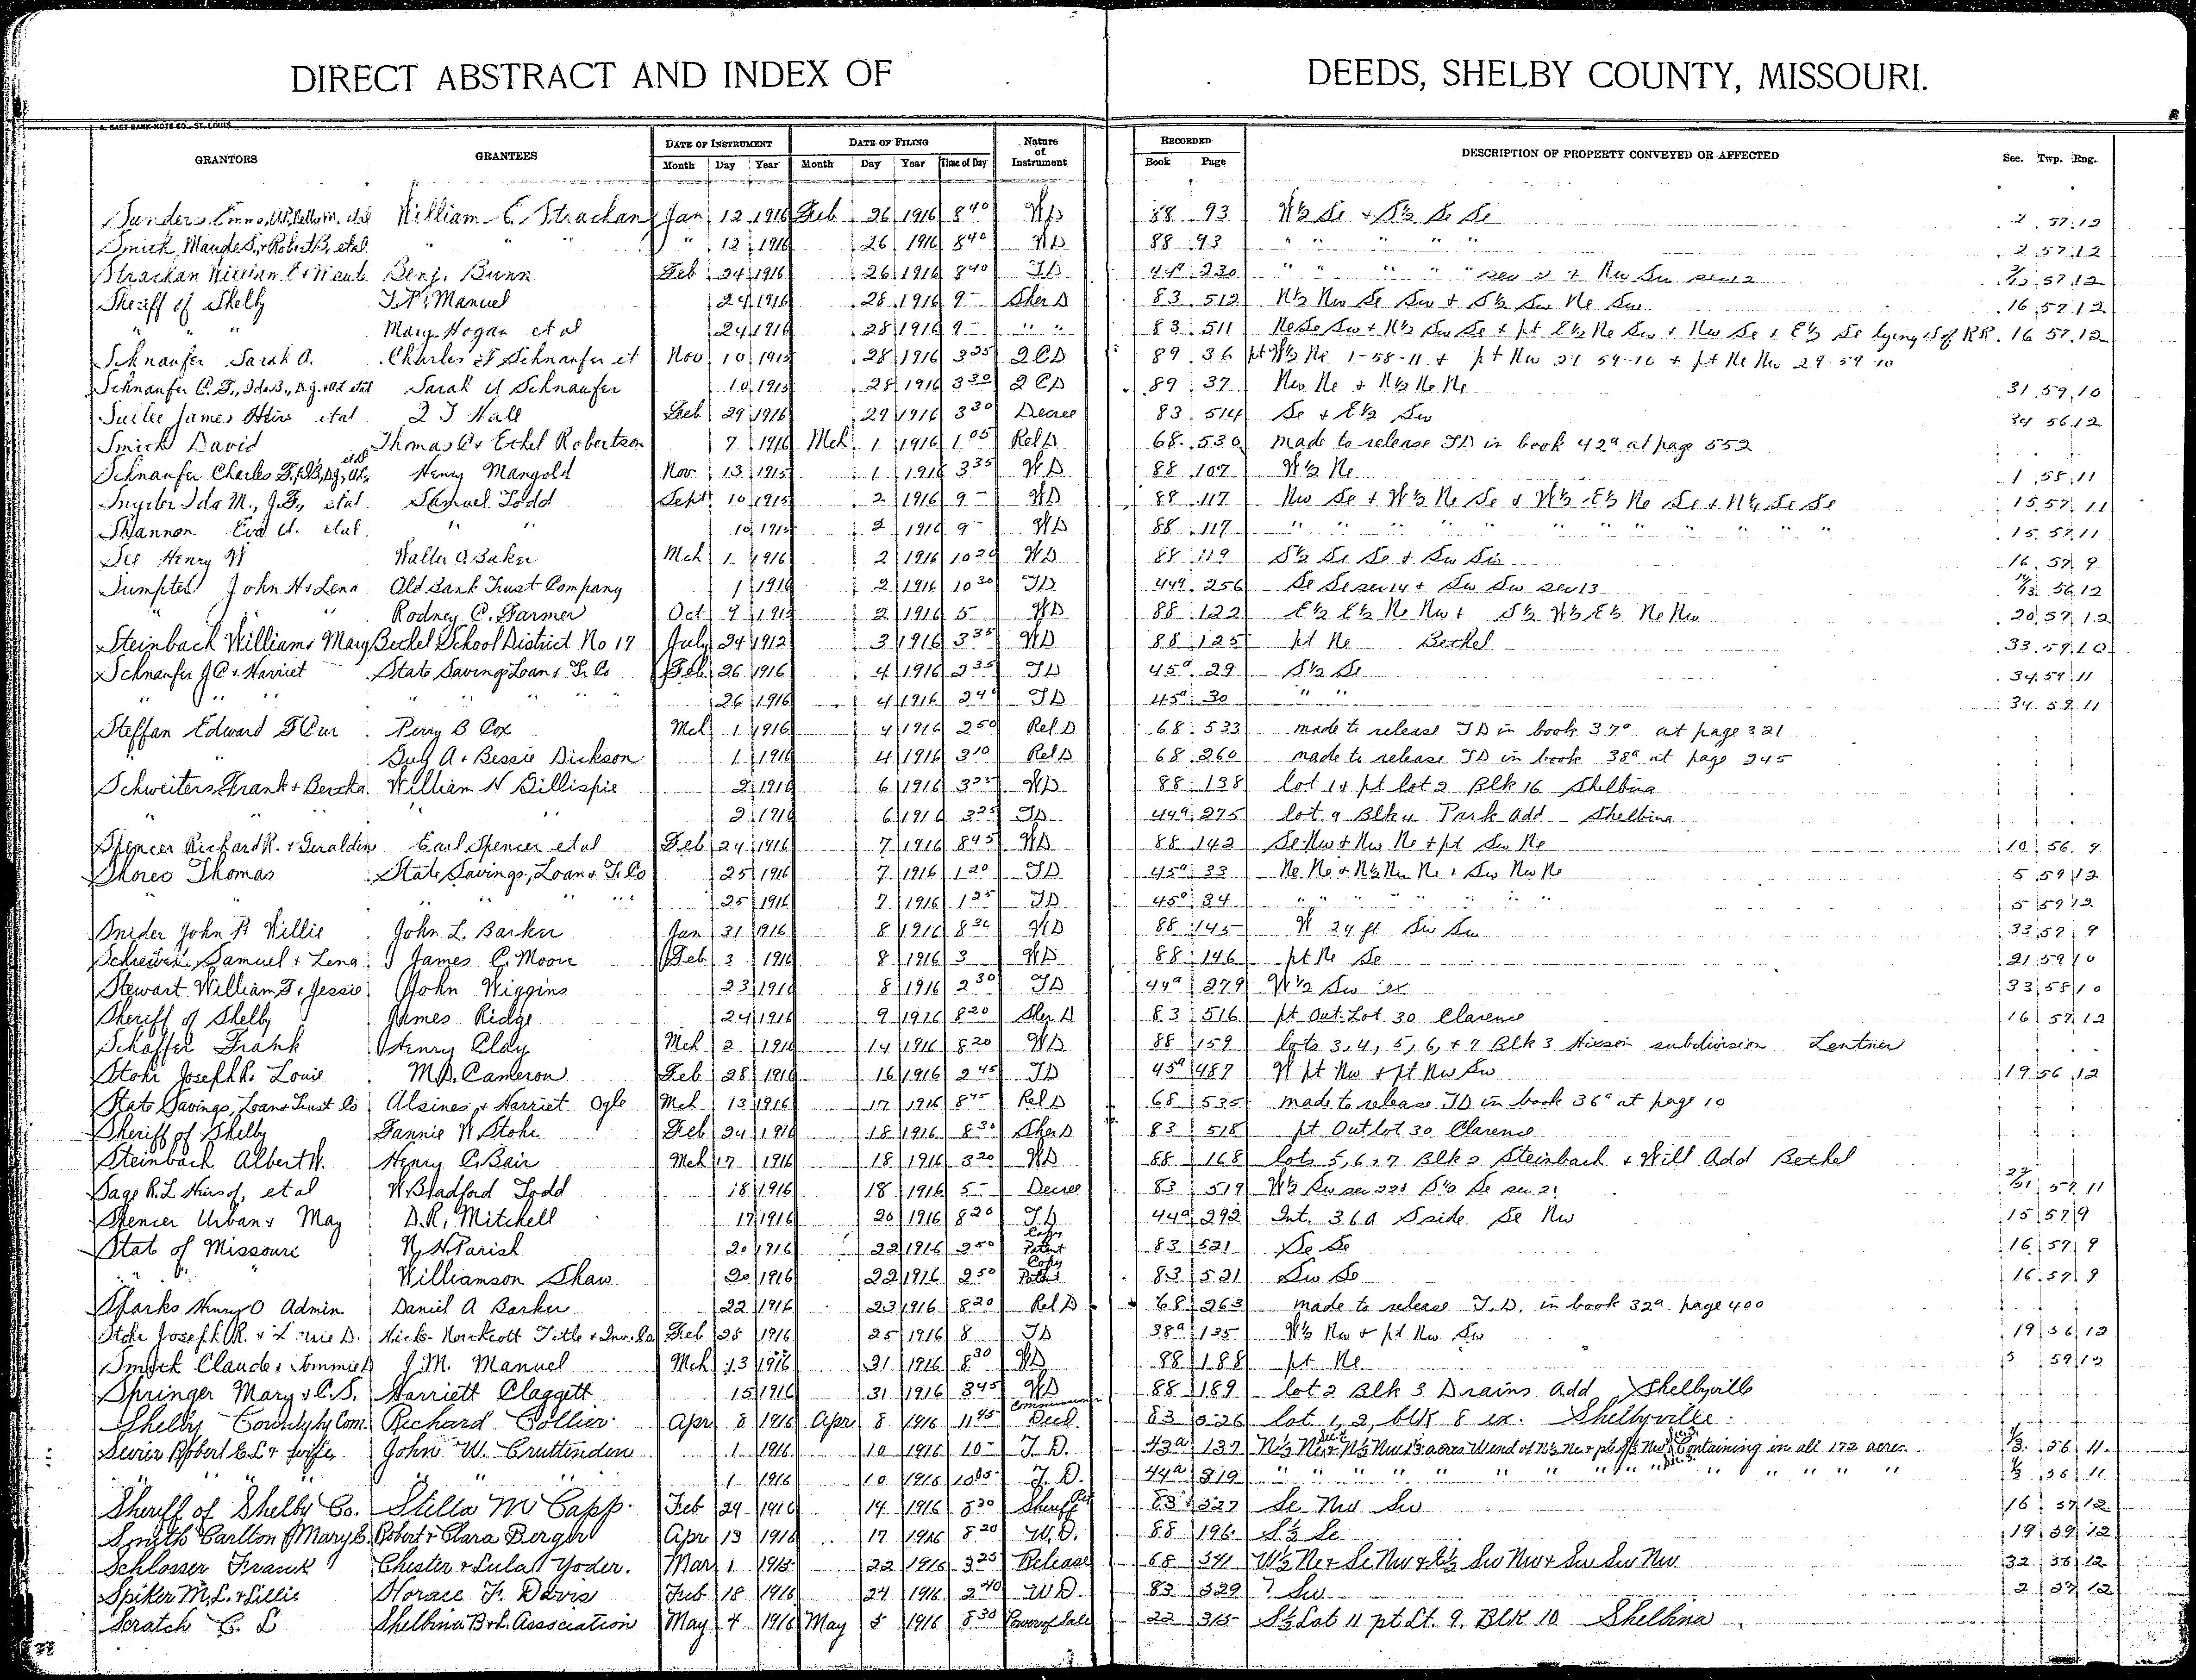 DIRECT ABSTRACT AND INDEX OF DEEDS, SHELBY COUNTY, MISSOURI.
GRANTORS GRANTEES DATE OF INSTRUMENT DATE OF FILING Nature of Instrument RECORDED DESCRIPTION OF PROPERTY CONVEYED OR AFFECTED Sec. Twp. Rng.
Month Day Year Month Day Year Time of Day Book Page
Sanders Emma, et al William E Strachan Jan 12 1916 Feb 26 1916 8 40 WD 88 93 W½ Se + S½ Se Se 2 57 12
Smick Maude S. + Robert B, etal " " " " 12 1916 26 1916 8 40 WD 88 93 " " " " " 2 57 12
Strachan William E + Maude Benj. Bunn Feb 24 1916 26 1916 8 40 TD 44a 230 " " " " " sec 2 + Nw Sw sec 12 2/12 57 12
Sheriff of Shelby J.P. Manuel 24 1916 28 1916 9 - Sher D 83 512 N½ Nw Se Sw + S½ Sw Ne Sw 16 57 12
" " " Mary Hogan et al 24 1916 28 1916 9 - " " 83 511 Ne Se Sw + N½ Sw Se + pt E½ Ne Sw + Nw Se + E½ Se lying S of RR. 16 57 12
Schnaufer Sarah A. Charles F Schnaufer et Nov 10 1915 28 1916 3 25 QCD 89 36 pt W½ Ne 1-58-11 + pt Nw 29 59-10 + pt Ne Nw 29-59-10
Schnaufer C.F., Ida B., etal Sarah A Schnaufer 10 1915 28 1916 3 30 QCD 89 37 Nw Ne + N½ Ne Ne 31 59 10
James Heirs etal Q J Hall Feb 29 1916 29 1916 3 30 Decree 83 514 Se + E½ Sw 34 56 12
Smick David Thomas C + Ethel Robertson 7 1916 Mch 1 1916 1 05 Rel D 68 530 made to release TD in book 42a at page 552
Schnaufer Charles F, etal Henry Mangold Nov 13 1915 1 1916 3 35 WD 88 107 W½ Ne 1 58 11
Snyder Ida M., J.F., etal. Samuel Todd Sept 10 1915 2 1916 9 - WD 88 117 Nw Se + W½ Ne Se + W½ E½ Ne Se + N½ Se Se 15 57 11
Shannon Eva A. etal. " " 10 1915 2 1916 9 - WD 88 117 " " " " " " " " " " " 15 57 11
See Henry W Walter C. Baker Mch 1 1916 2 1916 10 20 WD 88 119 S½ Se Se + Sw Se 16 57 9
Sumpter John H + Lena Old Bank Trust Company 1 1916 2 1916 10 30 TD 44a 256 Se Se sec 14 + Sw Sw sec 13 14/13 56 12
" " Rodney C. Farmer Oct 9 1915 2 1916 5 - WD 88 122 E½ E½ Ne Nw + S½ W½ E½ Ne Nw 20 57 12
Steinbach William + Mary Bethel School District No 17 July 24 1912 3 1916 3 35 WD 88 125 pt Ne Bethel 33 59 10
Schnaufer J C + Harriet State Savings Loan + Tr. Co Feb 26 1916 4 1916 2 35 TD 45a 29 S½ Se 34 59 11
" " " " " " " " 26 1916 4 1916 2 40 TD 45a 30 " " 34 59 11
Steffan Edward F Cur Perry B Cox Mch 1 1916 4 1916 2 50 Rel D 68 533 made to release TD in book 37a at page 321
" " Guy A + Bessie Dickson 1 1916 4 1916 3 10 Rel D 68 260 made to release TD in book 38a at page 245
Schweiters Frank + Bertha William N Gillispie 2 1916 6 1916 3 25 WD 88 138 lot 1 + pt lot 2 Blk 16 Shelbina
" " " 2 1916 6 1916 3 25 TD 44a 275 lot 9 Blk 4 Park Add Shelbina
Spencer Richard R. + Geraldin Earl Spencer et al Feb 24 1916 7 1916 8 45 WD 88 142 Se Nw + Nw Ne + pt Sw Ne 10 56 9
Shores Thomas State Savings, Loan + Tr. Co 25 1916 7 1916 1 20 TD 45a 33 Ne Ne + N½ Nw Ne + Sw Nw Ne 5 59 12
" " " " " " 25 1916 7 1916 1 25 TD 45a 34 " " " " " " " 5 59 12
Snider John P + Willie John L. Barker Jan 31 1916 8 1916 8 30 WD 88 145 W 24 ft Sw Sw 33 57 9
Samuel + Lena James C. Moore Feb 3 1916 8 1916 3 WD 88 146 pt Ne Se 21 59 10
Stewart William T + Jessie John Wiggins 23 1916 8 1916 2 30 TD 44a 279 W½ Sw ex 33 58 10
Sheriff of Shelby James Ridge 24 1916 9 1916 8 20 Sher D 83 516 pt Out Lot 30 Clarence 16 57 12
Schaffer Frank Henry Clay Mch 2 1916 14 1916 8 20 WD 88 159 lots 3, 4, 5, 6, + 7 Blk 3 Hixson subdivision Lentner
Stohr Joseph R. Louie M.D. Cameron Feb 28 1916 16 1916 2 45 TD 45a 487 W pt Nw + pt Nw Sw 19 56 12
State Savings, Loan + Trust Co Alsines + Harriet Ogle Mch 13 1916 17 1916 8 45 Rel D 68 535 made to release TD in book 36a at page 10
Sheriff of Shelby Fannie W Stohr Feb 24 1916 18 1916 8 30 Sher D 83 518 pt Outlot 30 Clarence
Steinbach Albert W. Henry C. Bair Mch 17 1916 18 1916 8 20 WD 88 168 lots 5, 6, + 7 Blk 2 Steinbach + Will Add Bethel
Sage R.L Heirs of, et al W. Bradford Todd 18 1916 18 1916 5 - Decree 83 519 W½ Sw sec 22 + S½ Se sec 21 22/21 57 11
Spencer Urban + May D.R. Mitchell 17 1916 20 1916 8 20 TD 44a 292 Int. 36 A S side Se Nw 15 57 9
Stat of Missouri N. H. Parish 20 1916 22 1916 2 50 Copy Patent 83 521 Se Se 16 57 9
" " Williamson Shaw 20 1916 22 1916 2 50 Copy Patent 83 521 Sw Se 16 57 9
Sparks Henry O Admin. Daniel A Barker 22 1916 23 1916 8 20 Rel D 68 263 made to release T.D. in book 32a page 400
Stohr Joseph R. + Louie D. Hicks-Northcott Title + Inv. Co Feb 28 1916 25 1916 8 TD 38a 135 W½ Nw + pt Nw Sw 19 56 12
Smock Claude + Tommie D J.M. Manuel Mch 13 1916 31 1916 8 30 WD 88 188 pt Ne 5 59 12
Springer Mary + C.S. Harriett Claggett 15 1916 31 1916 3 45 WD 88 189 lot 2 Blk 3 Drains Add Shelbyville
Shelby County by Com. Richard Collier Apr 8 1916 Apr 8 1916 11 45 Commissioner Deed 83 526 lot 1, 2, blk 8 ex. Shelbyville
Sevier Robert E.L. + wife John W. Cruttenden 1 1916 10 1916 10 - T.D. 43a 137 Containing in all 172 acres 1/3 56 11
" " " " " " 1 1916 10 1916 10 05 T.D. 44a 319 " " " " " " " " " " " " 1/3 56 11
Sheriff of Shelby Co. Stella M Capp Feb 24 1916 14 1916 8 30 Sheriff 83 527 Se Nw Sw 16 57 12
Smith Carlton + Mary C. Robert + Clara Berger Apr 13 1916 17 1916 8 20 W.D. 88 196 S½ Se 19 59 12
Schlosser Frank Chester + Lula Yoder. Mar 1 1915 22 1916 3 25 Release 68 541 W½ Ne + Se Nw + E½ Sw Nw + Sw Sw Nw 32 56 12
Spiker M.L. + Lillie Horace F. Davis Feb 18 1916 24 1916 2 40 W.D. 83 529 ? Sw 2 57 12
Scratch C. L Shelbina B+L. Association May 4 1916 May 5 1916 8 30 Power of Sale 22 315 S½ Lot 11 pt Lt. 9, Blk 10 Shelbina